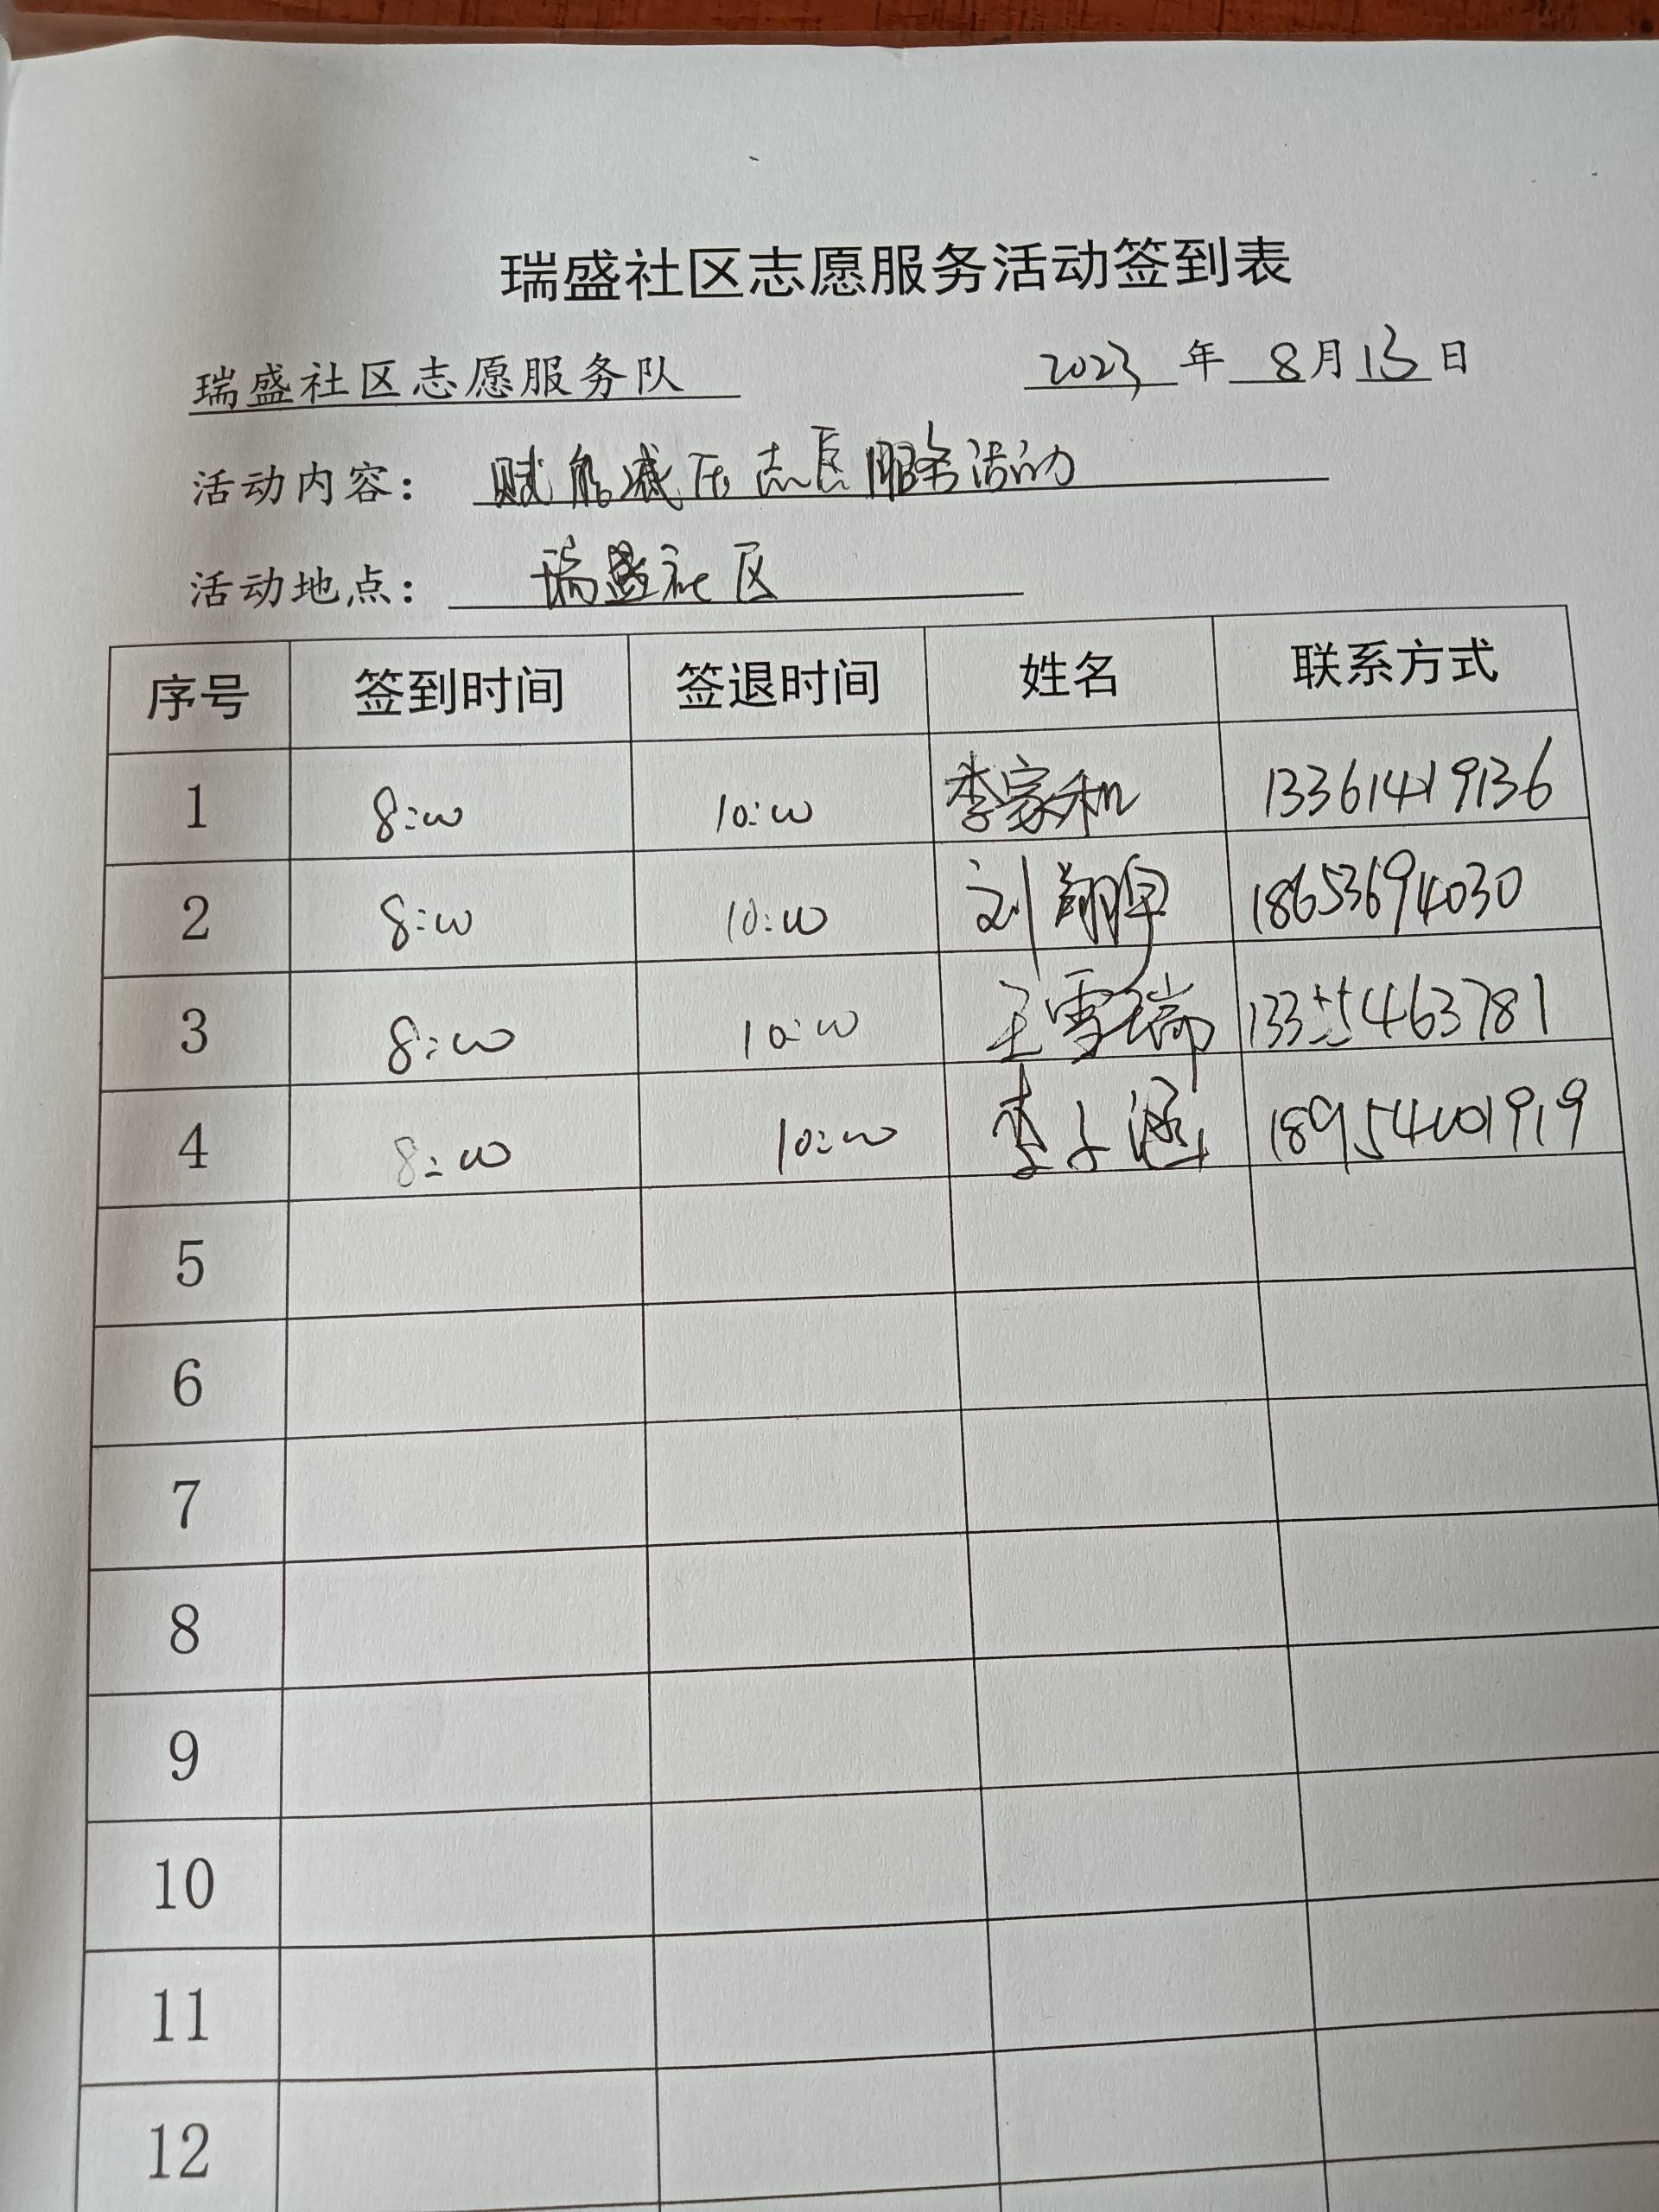 瑞盛社区志愿服务活动签到表
瑞盛社区志愿服务队 2023 年 8月13日
活动内容: 赋能减压志愿服务活动
活动地点: 瑞盛社区
序号 签到时间 签退时间 姓名 联系方式
1 8:00 10:00 李家和 13361419136
2 8:00 10:00 刘翔宇 18653694030
3 8:00 10:00 王雪瑞 463781
4 8:00 10:00 李子涵 18954401919
5
6
7
8
9
10
11
12